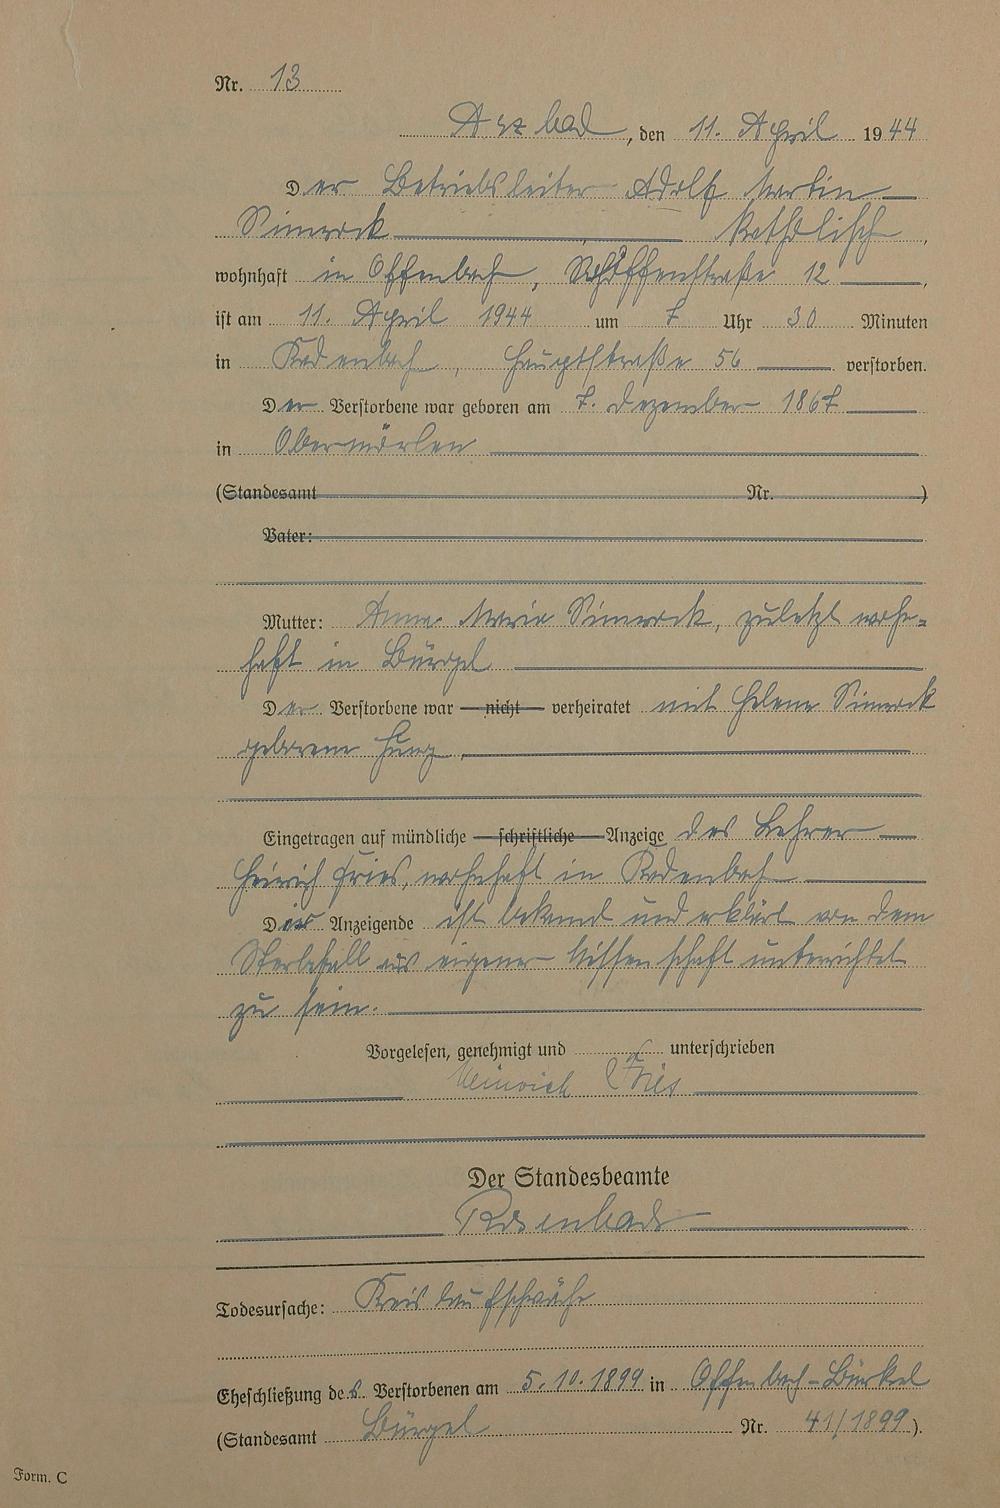 Nr. 13
Arzbach, den 11. April 1944
Der Betriebsleiter Adolf Martin
Simrock katholisch,
wohnhaft in Offenbach, Schöffenstraße 12,
ist am 11. April 1944 um 7 Uhr 30 Minuten
in Kadenbach, Hauptstraße 56 verstorben.
Der Verstorbene war geboren am 7. Dezember 1867
in Obermörlen
(Standesamt Nr. )
Vater:
Mutter: Anna Maria Simrock, zuletzt wohn-
haft in Bürgel
Der Verstorbene war nicht verheiratet mit Helene Simrock
geborene Hung
Eingetragen auf mündliche schriftliche Anzeige des Lehrer
Heinrich Fries, wohnhaft in Kadenbach
Der Anzeigende ist bekannt und erklärt von dem
Sterbefall aus eigener Wissenschaft unterrichtet
zu sein.
Vorgelesen, genehmigt und unterschrieben
Heinrich Fries
Der Standesbeamte
Todesursache: Kreislaufschwäche
Eheschließung des Verstorbenen am 5.10.1899 in Offenbach-Bürkel
(Standesamt Bürgel Nr. 41/1899).
Form. C